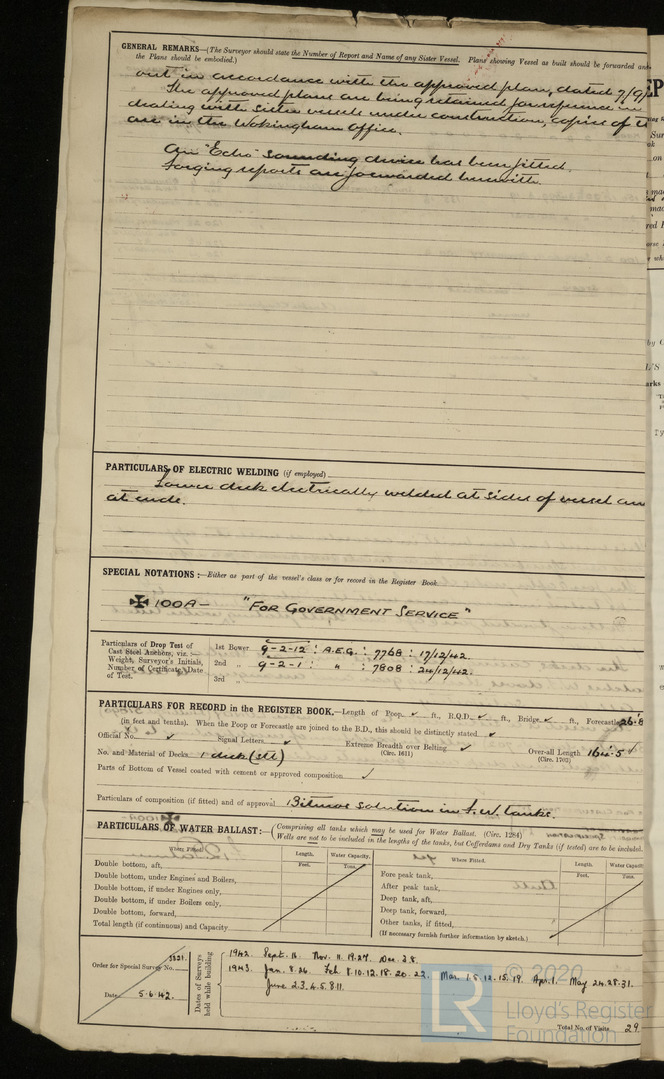 GENERAL REMARKS—(The Surveyor should state the Number of Report and Name of any Sister Vessel. Plans showing Vessel as built should be forwarded and
the Plans should be embodied.)
out in accordance with the approved plan, dated 7/9/
The approved plans are being retained for reference in
dealing with sister vessels under construction, copies of
are in the Wokingham Office.
An "Echo" sounding device has been fitted.
Forging reports are forwarded herewith.
PARTICULARS OF ELECTRIC WELDING (if employed)
Lower deck electrically welded at sides of vessel an
at ends.
SPECIAL NOTATIONS :—Either as part of the vessel's class or for record in the Register Book.
✠ 100A — "FOR GOVERNMENT SERVICE"
Particulars of Drop Test of Cast Steel Anchors, viz :— Weight, Surveyor's Initials, Number of Certificate, Date of Test.
1st Bower 9-2-12 : A.E.G. : 7768 : 17/12/42.
2nd " 9-2-1 : " : 7808 : 24/12/42.
3rd "
PARTICULARS FOR RECORD in the REGISTER BOOK.—Length of Poop ✓ ft., R.Q.D. ✓ ft., Bridge ✓ ft., Forecastle 26·8
(in feet and tenths). When the Poop or Forecastle are joined to the B.D., this should be distinctly stated ✓
Official No. ✓ Signal Letters ✓ Extreme Breadth over Belting ✓ (Circ. 1611) Over-all Length 164·5 (Circ. 1703)
No. and Material of Decks 1 deck (stl)
Parts of Bottom of Vessel coated with cement or approved composition ✓
Particulars of composition (if fitted) and of approval Bitumos solution in F.W. tanks.
PARTICULARS OF WATER BALLAST:—(Comprising all tanks which may be used for Water Ballast. (Circ. 1284)
Wells are not to be included in the lengths of the tanks, but Cofferdams and Dry Tanks (if tested) are to be included.
Where Fitted. Length. Feet. Water Capacity. Tons. Where Fitted. Length. Feet. Water Capacit Tons.
Double bottom, aft, Fore peak tank,
Double bottom, under Engines and Boilers, After peak tank,
Double bottom, if under Engines only, Deep tank, aft,
Double bottom, if under Boilers only, Deep tank, forward,
Double bottom, forward, Other tanks, if fitted,
Total length (if continuous) and Capacity (If necessary furnish further information by sketch.)
Order for Special Survey No. 3521.
Date 5.6.42.
Dates of Surveys held while building
1942. Sept. 16. Nov. 11.19.27. Dec. 28.
1943. Jan. 8.26. Feb. 8.10.12.18.20.22. Mar. 1.5.12.15.19. Apr. 1. May 24.28.31.
June 2.3.4.5.8.11.
Total No. of Visits 29.
© 2020
LR
Lloyd's Register
Foundation